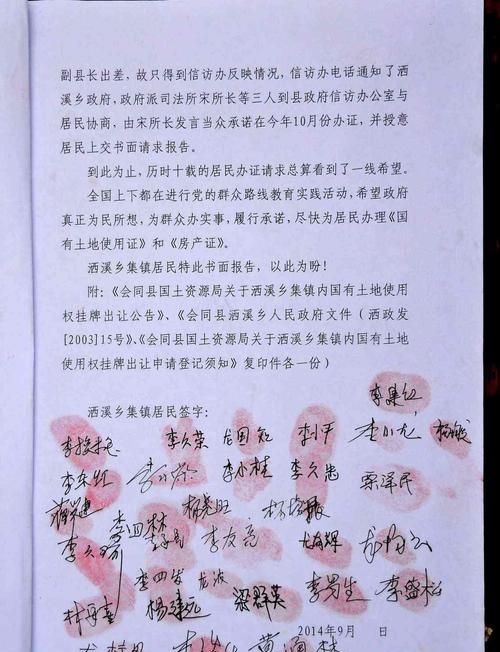 副县长出差，故只得到信访办反映情况，信访办电话通知了洒
溪乡政府，政府派司法所宋所长等三人到县政府信访办公室与
居民协商，由宋所长发言当众承诺在今年10月份办证，并授意
居民上交书面请求报告。
到此为止，历时十载的居民办证请求总算看到了一线希望。
全国上下都在进行党的群众路线教育实践活动，希望政府
真正为民所想，为群众办实事，履行承诺，尽快为居民办理《国
有土地使用证》和《房产证》。
洒溪乡集镇居民特此书面报告，以此为盼！
附：《会同县国土资源局关于洒溪乡集镇内国有土地使用
权挂牌出让公告》、《会同县洒溪乡人民政府文件（洒政发
[2003]15号》、《会同县国土资源局关于洒溪乡集镇内国有土地
使用权挂牌出让申请登记须知》复印件各一份）
洒溪乡集镇居民签字：
李集红
李久荣 龙国知 李小平 李小龙
李东红 李小桂 李久忠 栗泽民
李四林 杨尧旺
李友亮
李四发 龙波 梁群英 李男生 李盛松
林再喜 杨建元
2014年9月 日